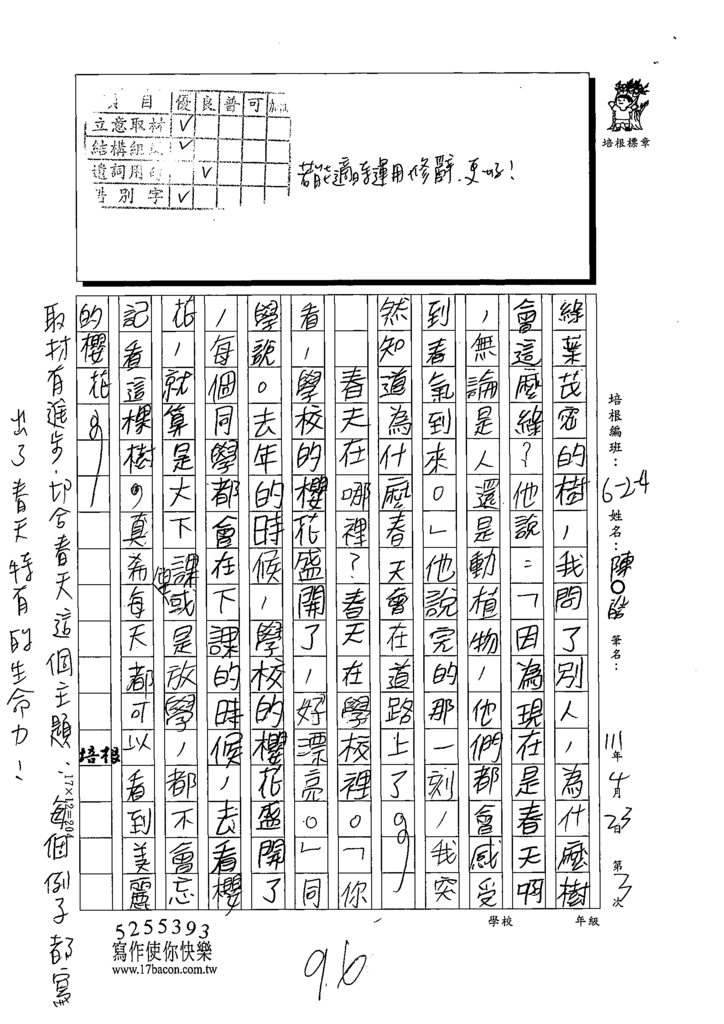 項目 優 良 普 可 加油
立意取材 ✓
結構組織 ✓
遣詞用句 ✓
錯別字 ✓
若能適時運用修辭,更好!
培根標章
培根編班:6-2-4 姓名:陳○皓 筆名:
111年4月23日 第3次
學校 年級
綠葉茂密的樹,我問了別人,為什麼樹
會這麼綠?他說:「因為現在是春天啊
,無論是人還是動植物,他們都會感受
到春氣到來。」他說完的那一刻,我突
然知道為什麼春天會在道路上了。
春天在哪裡?春天在學校裡。「你
看,學校的櫻花盛開了,好漂亮。」同
學說。去年的時候,學校的櫻花盛開了
,每個同學都會在下課的時候,去看櫻
花,就算是大下課或是放學,都不會忘
記看這棵樹,真希每天都可以看到美麗
的櫻花。
連
培根
17×12=204
取材有進步,切合春天這個主題,每個例子都寫
出了春天特有的生命力!
5255393
寫作使你快樂
www.17bacon.com.tw
96